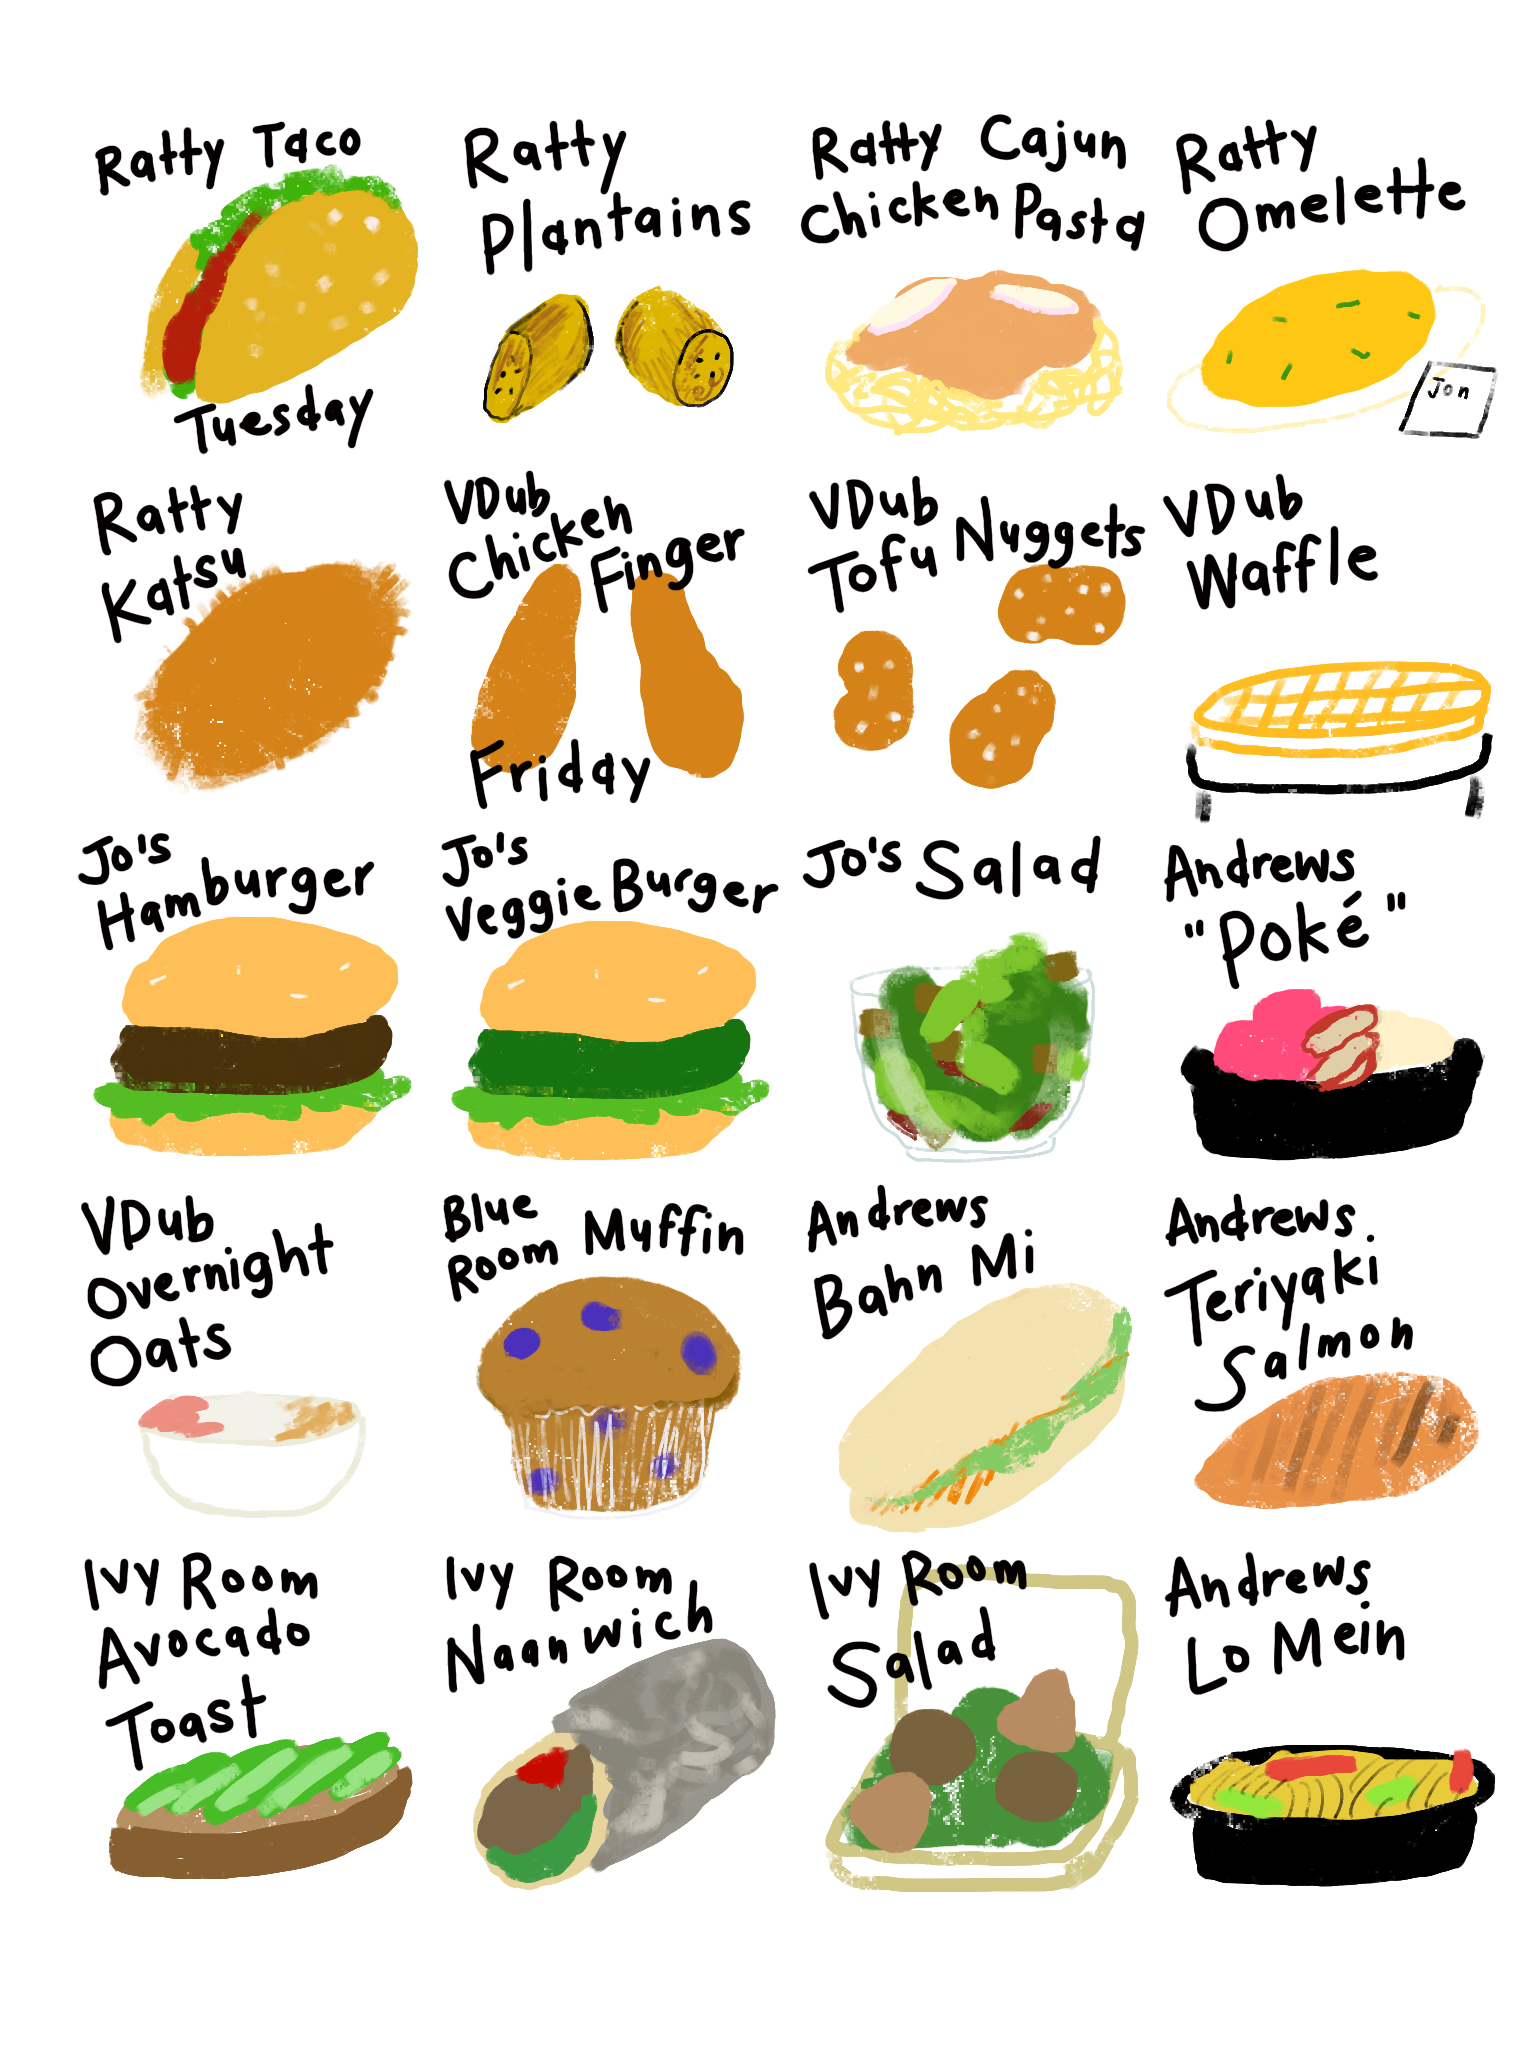 Ratty Taco
Tuesday
Ratty
Plantains
Ratty Cajun
Chicken Pasta
Ratty
Omelette
Jon
Ratty
Katsu
VDub
Chicken
Finger
Friday
VDub
Tofu Nuggets
VDub
Waffle
Jo's
Hamburger
Jo's
Veggie Burger
Jo's Salad
Andrews
"Poké"
VDub
Overnight
Oats
Blue
Room Muffin
Andrews
Bahn Mi
Andrews
Teriyaki
Salmon
Ivy Room
Avocado
Toast
Ivy Room
Naanwich
Ivy Room
Salad
Andrews
Lo Mein